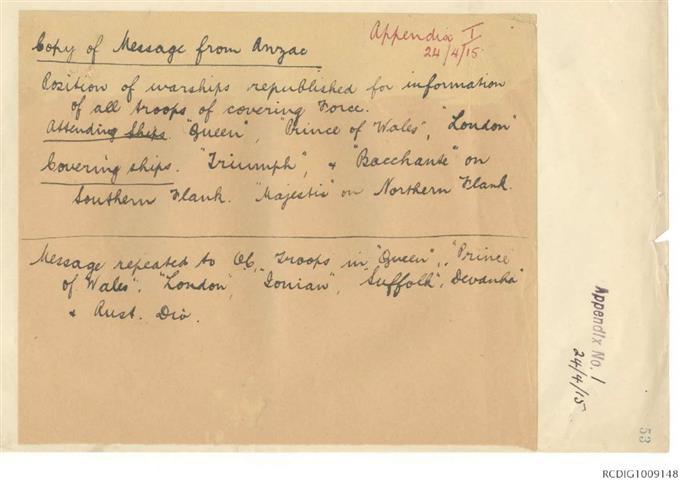 Appendix I
24/4/15
Copy of Message from Anzac
Position of warships republished for information
of all troops of covering Force.
Attending Ships. "Queen", "Prince of Wales", "London"
Covering ships. "Triumph", & "Bacchante" on
Southern Flank. "Majestic" on Northern Flank.
Message repeated to OC, Troops in "Queen", "Prince
of Wales", "London", "Ionian", "Suffolk", Devanha"
& Aust. Div.
Appendix No. 1
24/4/15
53
RCDIG1009148